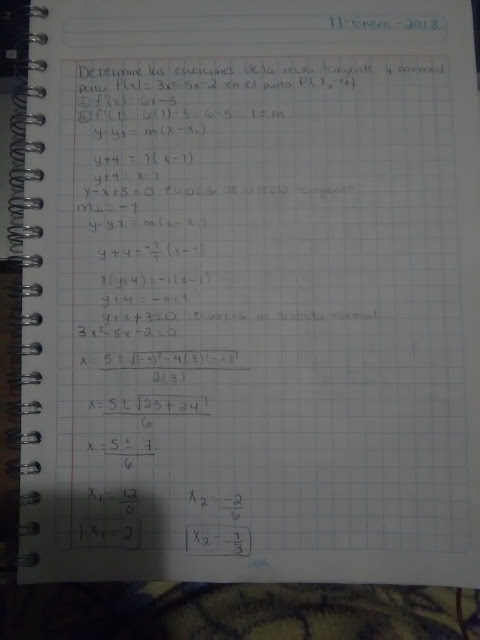 11-Enero-2018
Determine las ecuaciones de la recta tangente y normal
para f(x) = 3x²-5x-2 en el punto P(1,-4)
a) f'(x) = 6x-5
b) f'(1) = 6(1)-5 = 6-5 = 1 = m
y-y₁ = m(x-x₁)
y+4 = 1(x-1)
y+4 = x-1
y-x+5=0 Ecuación de la recta tangente
m⊥ = -1
y-y1 = m(x-x₁)
y+4 = -1/1 (x-1)
1(y+4) = -1(x-1)
y+4 = -x+1
y+x+3=0 Ecuación de la recta normal
3x²-5x-2=0
x = 5 ± √(-5)²-4(3)(-2)
2(3)
x = 5 ± √25+24
6
x = 5 ± 7
6
x₁ = 12/6 x₂ = -2/6
x₁ = 2 x₂ = -1/3